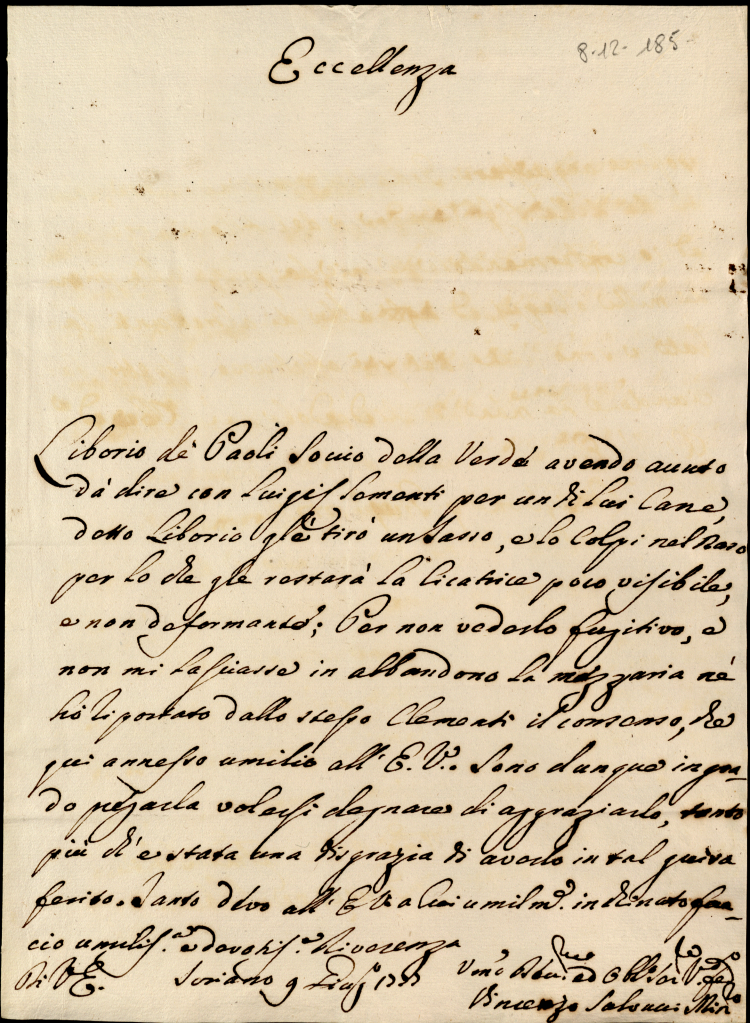 8-12-185-
Eccellenza
Liborio dè Paoli Soccio della Verde avendo auuto
dà dire con Luigi Clementi per un di lui Cane,
detto Liborio gl'è tirò un Sasso, e lo Colpì nel Naso
per lo che gle restarà la Cicatrice poco visibile,
e non deformante; Per non vederlo fugitivo, e
non mi lasciasse in abbandono la mezzaria né
hò riportato dallo stesso Clementi il consenso, che
qui annesso umilio all' E. V. Sono dunque in gra-
do pregarla volersi degnare di aggraziarlo, tanto
più ch' è stata una disgrazia di averlo in tal guisa
ferito. Tanto devo all' E. V. a cui umilm.e inchinato fac-
cio umilis.a e devotis.a Riverenza
Di V. E. Soriano 9
Vincenzo Salvucci